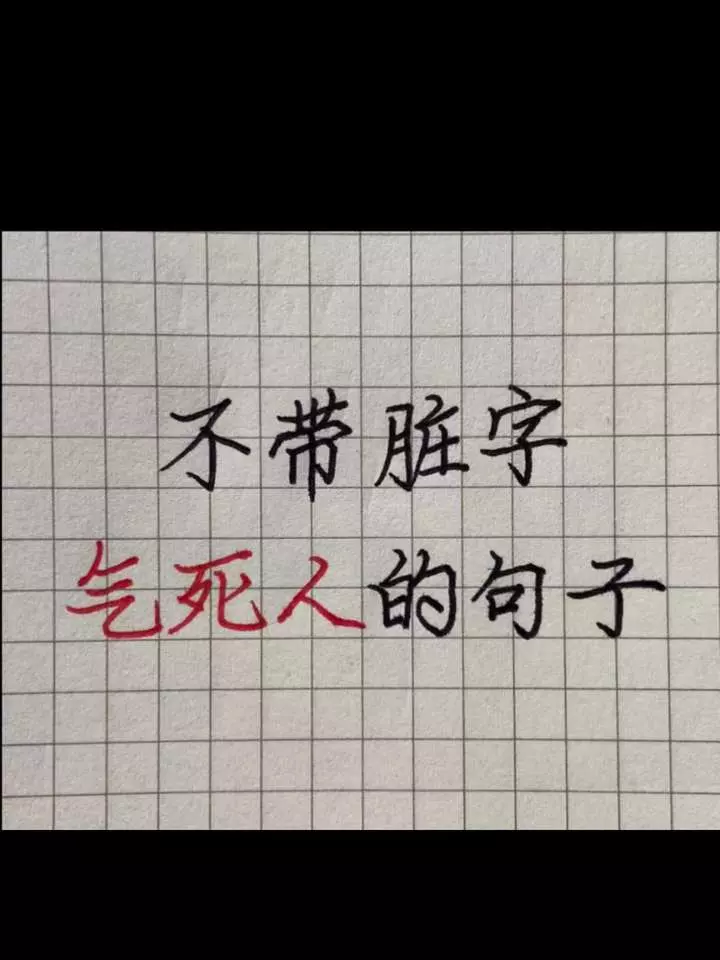 不带脏字
气死人的句子